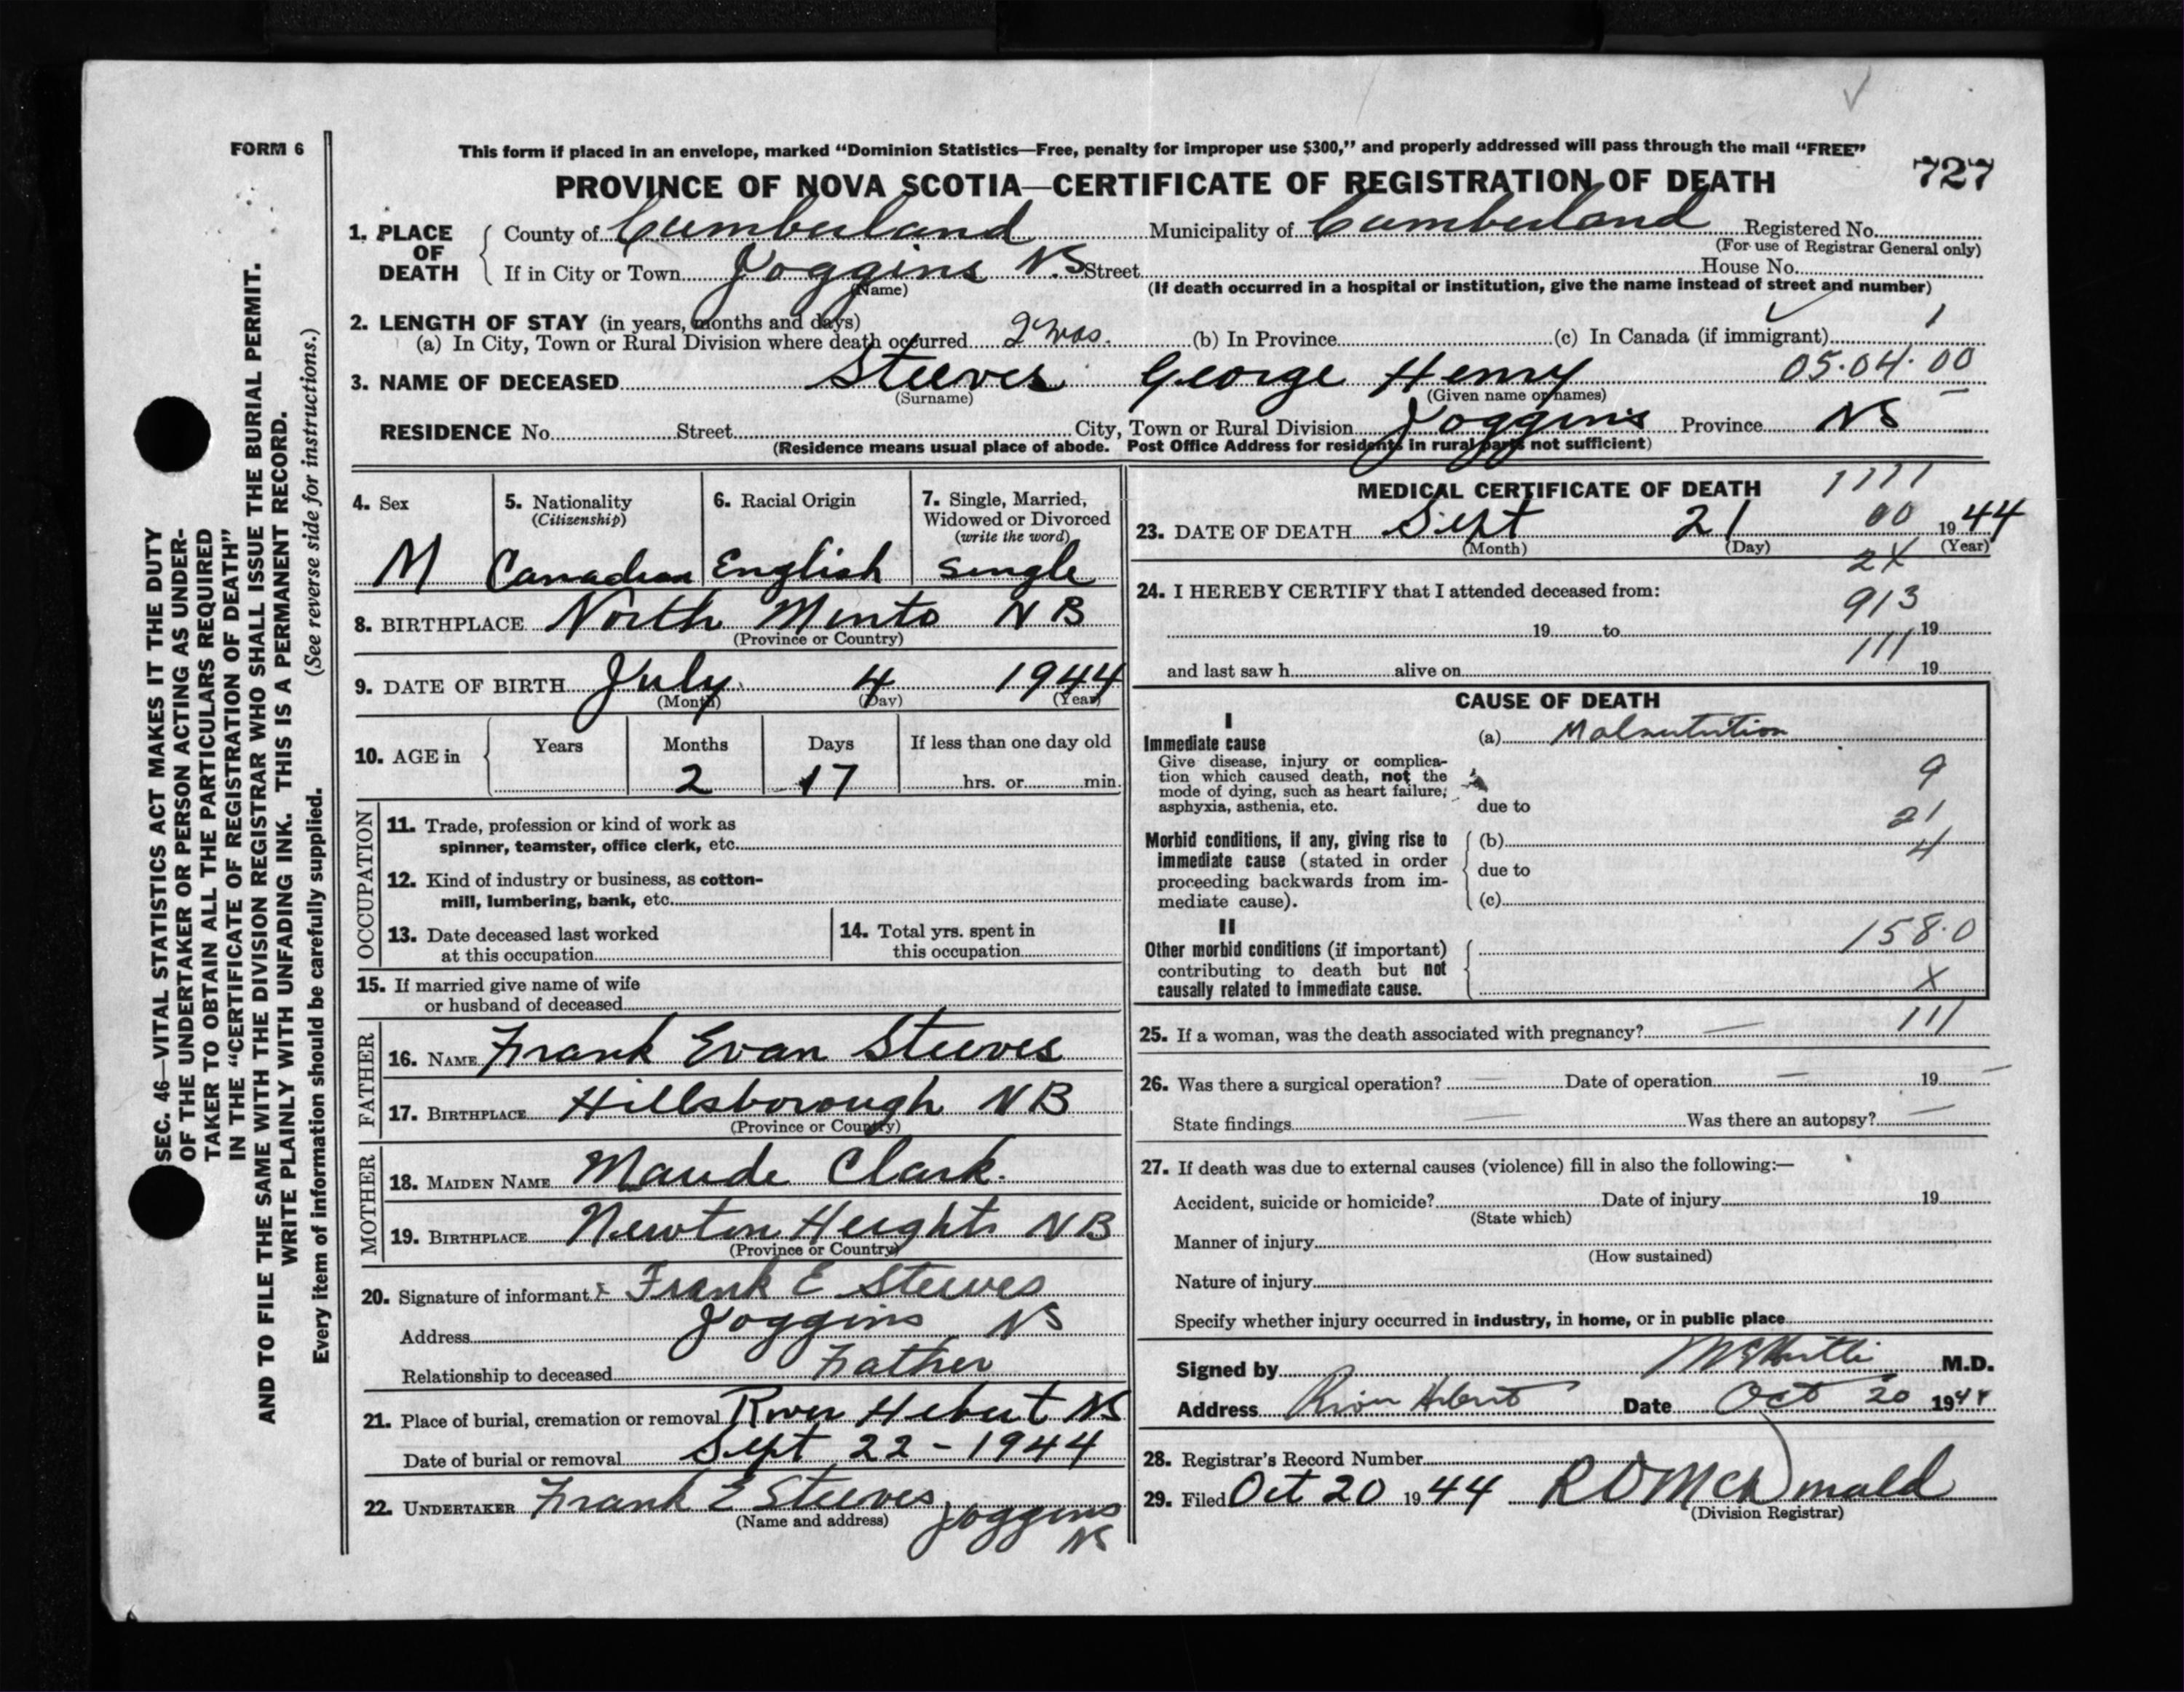 FORM 6
This form if placed in an envelope, marked “Dominion Statistics—Free, penalty for improper use $300,” and properly addressed will pass through the mail “FREE”
727
PROVINCE OF NOVA SCOTIA—CERTIFICATE OF REGISTRATION OF DEATH
1. PLACE OF DEATH
County of Cumberland Municipality of Cumberland Registered No.
(For use of Registrar General only)
If in City or Town Joggins NS Street House No.
(Name) (If death occurred in a hospital or institution, give the name instead of street and number)
2. LENGTH OF STAY (in years, months and days)
(a) In City, Town or Rural Division where death occurred 2 mos. (b) In Province (c) In Canada (if immigrant) 1
3. NAME OF DECEASED Steeves George Henry 05.04.00
(Surname) (Given name or names)
RESIDENCE No. Street City, Town or Rural Division Joggins Province NS
(Residence means usual place of abode. Post Office Address for residents in rural parts not sufficient)
4. Sex
M
5. Nationality
(Citizenship)
Canadian
6. Racial Origin
English
7. Single, Married,
Widowed or Divorced
(write the word)
Single
8. BIRTHPLACE North Minto NB
(Province or Country)
9. DATE OF BIRTH July 4 1944
(Month) (Day) (Year)
10. AGE in
Years Months Days If less than one day old
2 17 hrs. or min.
OCCUPATION
11. Trade, profession or kind of work as
spinner, teamster, office clerk, etc.
12. Kind of industry or business, as cotton-
mill, lumbering, bank, etc.
13. Date deceased last worked
at this occupation
14. Total yrs. spent in
this occupation
15. If married give name of wife
or husband of deceased
FATHER
16. NAME Frank Evan Steeves
17. BIRTHPLACE Hillsborough NB
(Province or Country)
MOTHER
18. MAIDEN NAME Maude Clark.
19. BIRTHPLACE Newton Heights NB
(Province or Country)
20. Signature of informant x Frank E Steeves
Address Joggins NS
Relationship to deceased Father
21. Place of burial, cremation or removal River Hebert NS
Date of burial or removal Sept 22-1944
22. UNDERTAKER Frank E Steeves Joggins
(Name and address)
NS
MEDICAL CERTIFICATE OF DEATH 1111
23. DATE OF DEATH Sept 21 00 1944
(Month) (Day) (Year)
2X
24. I HEREBY CERTIFY that I attended deceased from: 913
19 to 19
111
and last saw h alive on 19
CAUSE OF DEATH
I
Immediate cause
Give disease, injury or complica-
tion which caused death, not the
mode of dying, such as heart failure,
asphyxia, asthenia, etc.
(a) Malnutrition
9
due to
21
Morbid conditions, if any, giving rise to
immediate cause (stated in order
proceeding backwards from im-
mediate cause).
(b) 4
due to
(c)
II
Other morbid conditions (if important)
contributing to death but not
causally related to immediate cause.
158.0
X
25. If a woman, was the death associated with pregnancy? — 111
26. Was there a surgical operation? — Date of operation — 19 —
State findings — Was there an autopsy? —
27. If death was due to external causes (violence) fill in also the following:—
Accident, suicide or homicide? Date of injury 19
(State which)
Manner of injury
(How sustained)
Nature of injury
Specify whether injury occurred in industry, in home, or in public place
Signed by M.D.
Address River Hebert Date Oct 20 1944
28. Registrar's Record Number
29. Filed Oct 20 1944 R D McDonald
(Division Registrar)
SEC. 46—VITAL STATISTICS ACT MAKES IT THE DUTY
OF THE UNDERTAKER OR PERSON ACTING AS UNDER-
TAKER TO OBTAIN ALL THE PARTICULARS REQUIRED
IN THE “CERTIFICATE OF REGISTRATION OF DEATH”
AND TO FILE THE SAME WITH THE DIVISION REGISTRAR WHO SHALL ISSUE THE BURIAL PERMIT.
WRITE PLAINLY WITH UNFADING INK. THIS IS A PERMANENT RECORD.
Every item of information should be carefully supplied. (See reverse side for instructions.)